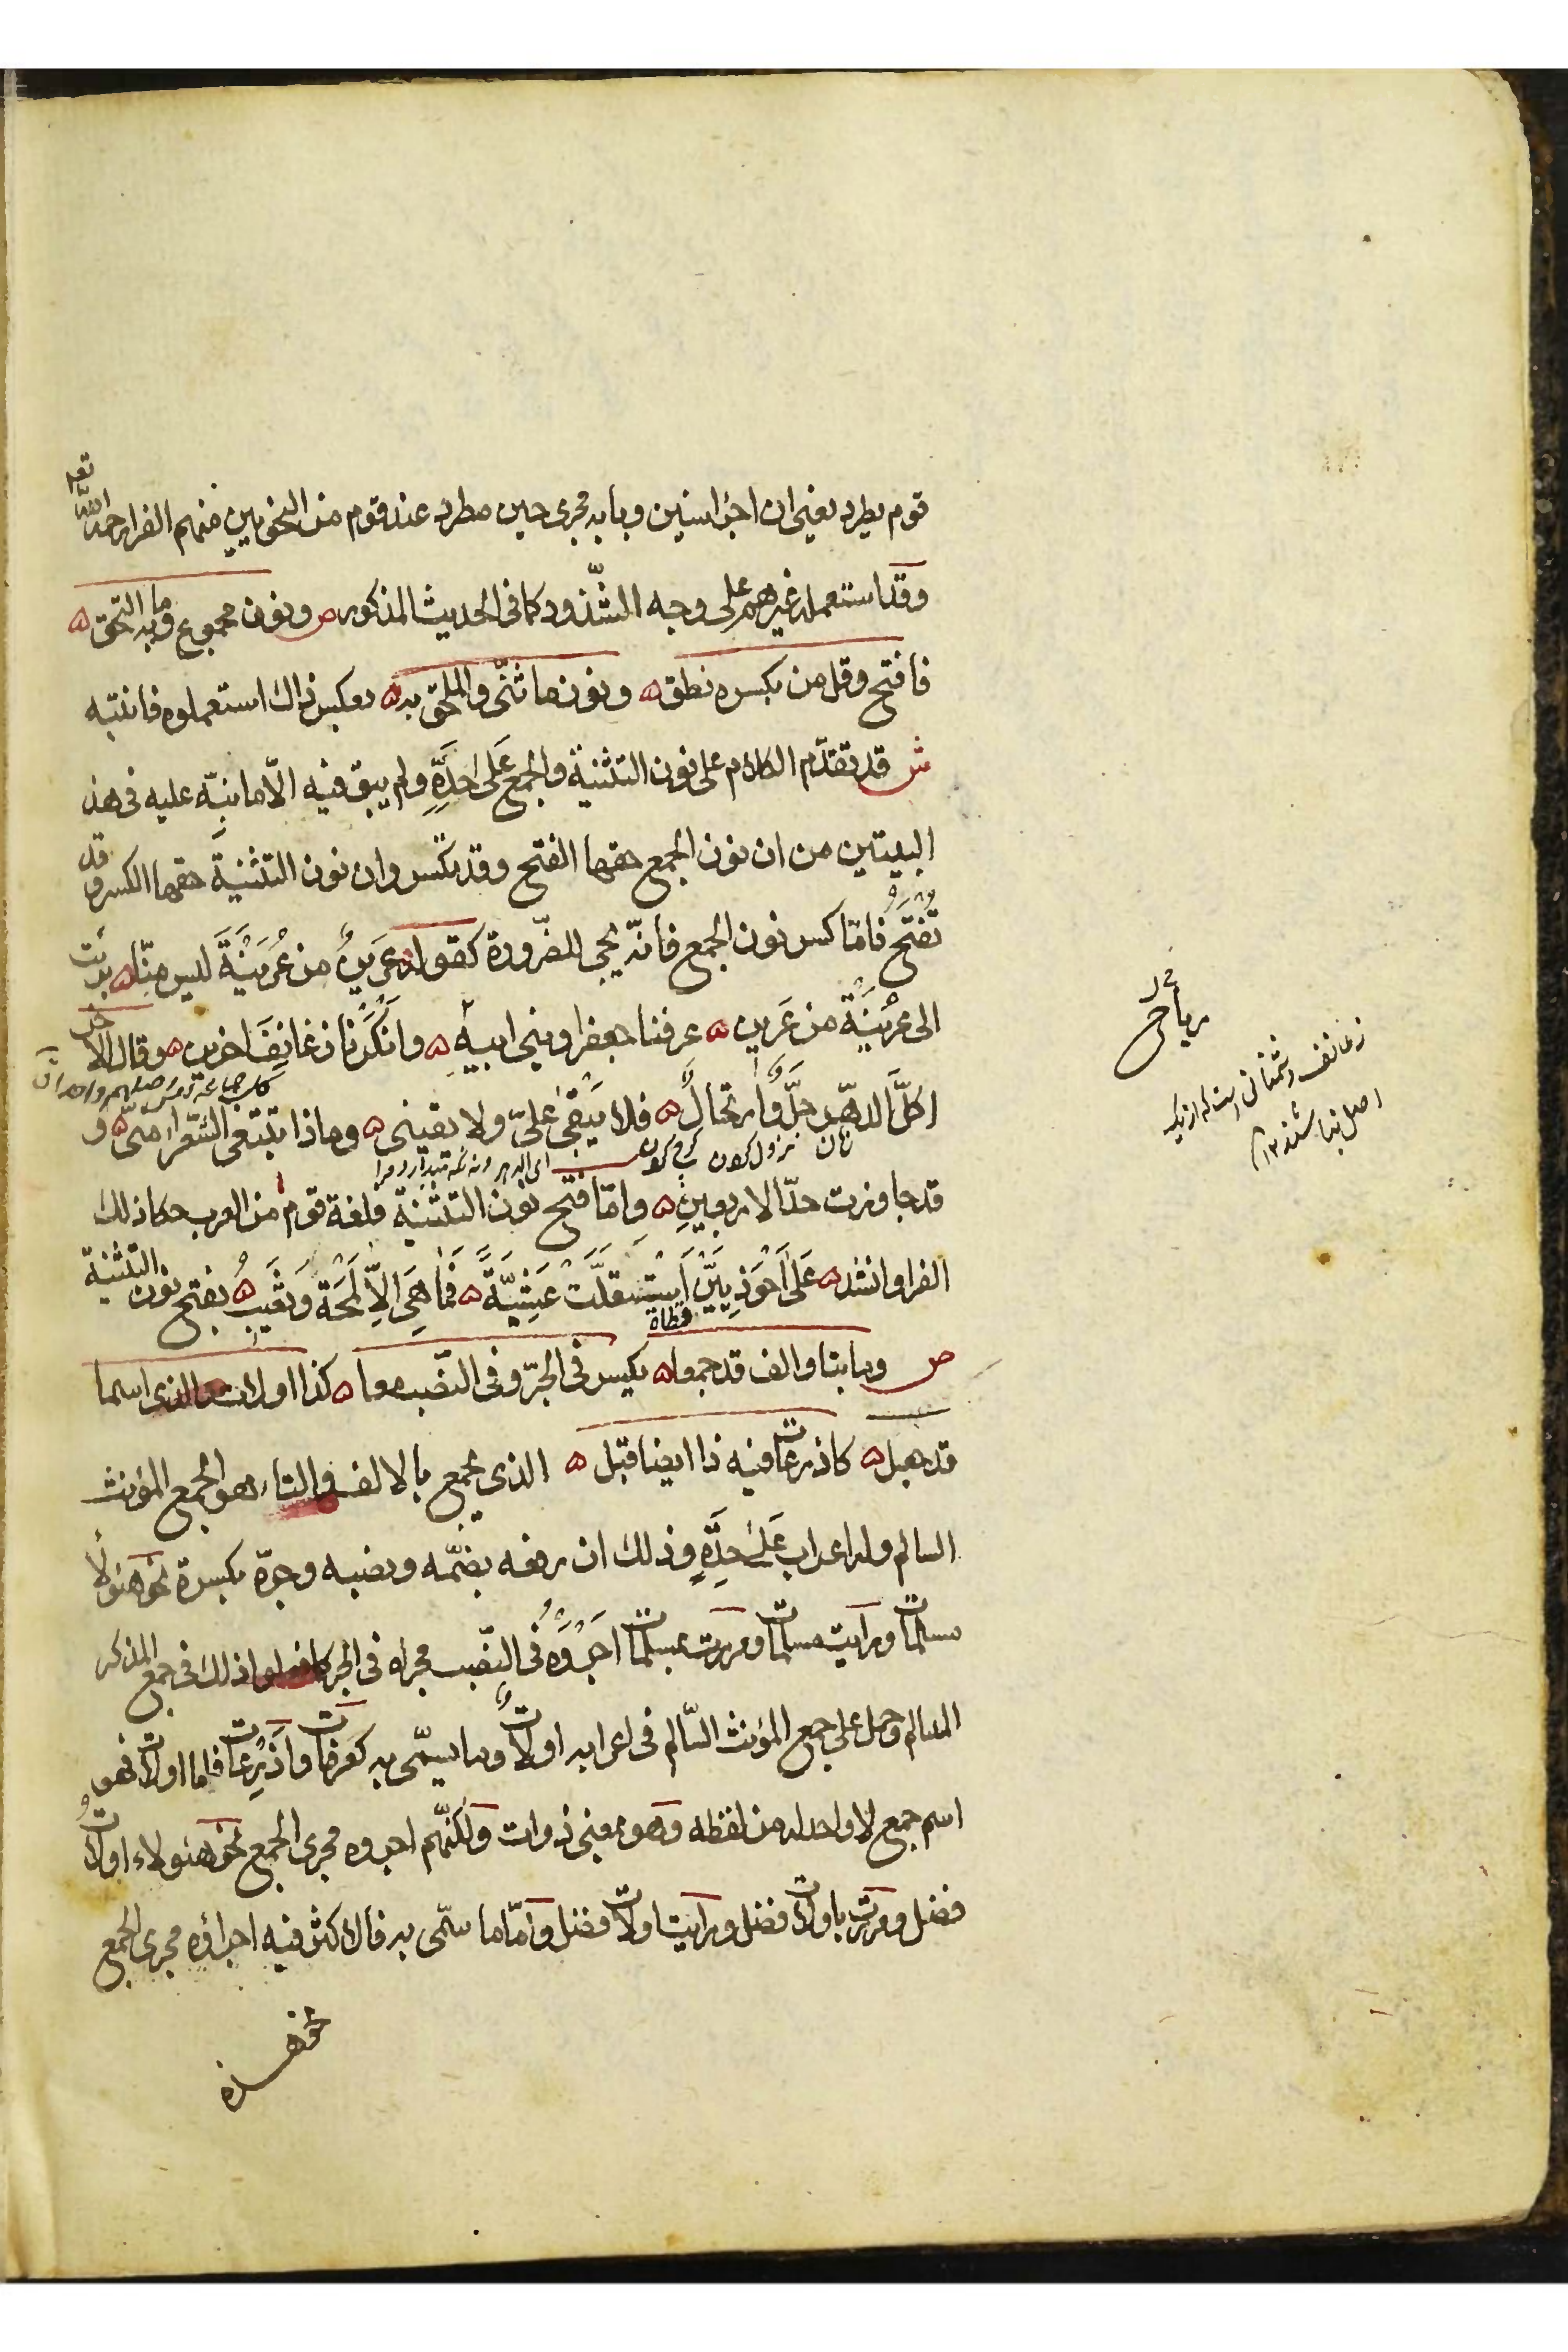 قوم يطرد يعني ان اجرا سنين وبابه مجرى حين مطرد عند قوم من النحويين منهم الفرا رحمه الله تع
وقد استعمله غيرهم على وجه الشّذوذ كما في الحديث المذكور ص ونون مجموع وما به التحق
فافتح وقل من بكسره نطق ونون ما ثنّي والملحق به بعكس ذاك استعملوه فانتبه
ش قد تقدّم الكلام على نون التثنية والجمع عَلى حِدَةٍ ولم يبق فيه الّا ما نبّه عليه في هذ
البيتين من ان نون الجمع حقها الفتح وقد تكسر وان نون التثنية حقها الكسر وقد
تُفتَح فامّا كسر نون الجمع فانّه يجي للضّرورة كقوله عَرينٌ من عُرَيْنَةَ ليس منّا برئت
الى عُرَيْنَةَ من عَرين عرفنا جعفرا وبني ابيهِ وانكَرْنا زعانِفَ اخرين وقال الاخر
اكلَّ الدهرِ حِلٌّ وارتحالٌ فلا يبقي عليّ ولا يقيني وماذا تبتغي الشّعراء منّي و
قد جاوزت حدّ الاربعينِ وامّا فتح نون التثنية فلغة قوم من العرب حكا ذلك
الفرا وانشد عَلى اَحْوَذِيَّيْنَ استقلّت عَشِيَّةً فما هِيَ اِلّا لَمْحَة وَتَغيبُ بفتح نون التثنية
قطاة
ص وما بتا والف قد جمعا يكسر في الجرّ وفي النّصب معا كذا اولات والذي اسما
قد جعل كاذرعات فيه ذا ايضا قبل الذي يجمع بالالف والتاء هو الجمع المؤنث
السالم وله اعراب عَلى حِدَةٍ وذلك ان رفعه بضمّه ونصبه وجرّه بكسرة نحو هؤلاء
مسلمات ورايت مسلمات ومررت بمسلمات اجروه في النّصب مجراه في الجر كما فعلوا ذلك في جمع المذكر
السالم وحمل على جمع المؤنث السّالم في اعرابه اولاتٌ وما يسمّى به كعرفات واذرِعات فاما اولات فهو
اسم جمع لا واحد له من لفظه وهو بمعنى ذوات ولكنّهم اجروه مجرى الجمع نحو هؤلاء اولاتُ
فضل ومررت باولات فضل ورايت اولات فضل وامّا ما سمّى به فالاكثر فيه اجراؤه مجرى الجمع